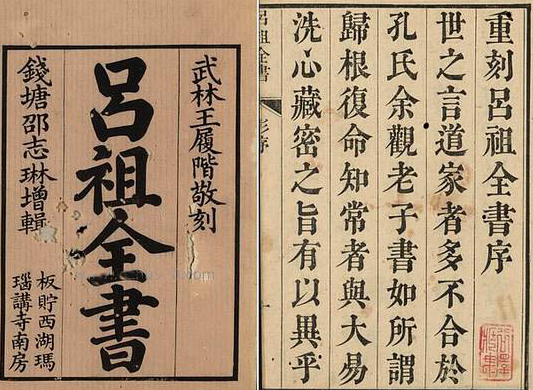 武林王履階敬刻
呂祖全書
錢塘邵志琳增輯
板貯西湖瑪
瑙講寺南房
重刻呂祖全書序
世之言道家者多不合於
孔氏余觀老子書如所謂
歸根復命知常者與大易
洗心藏密之旨有以異乎
呂祖全書
彭序
一